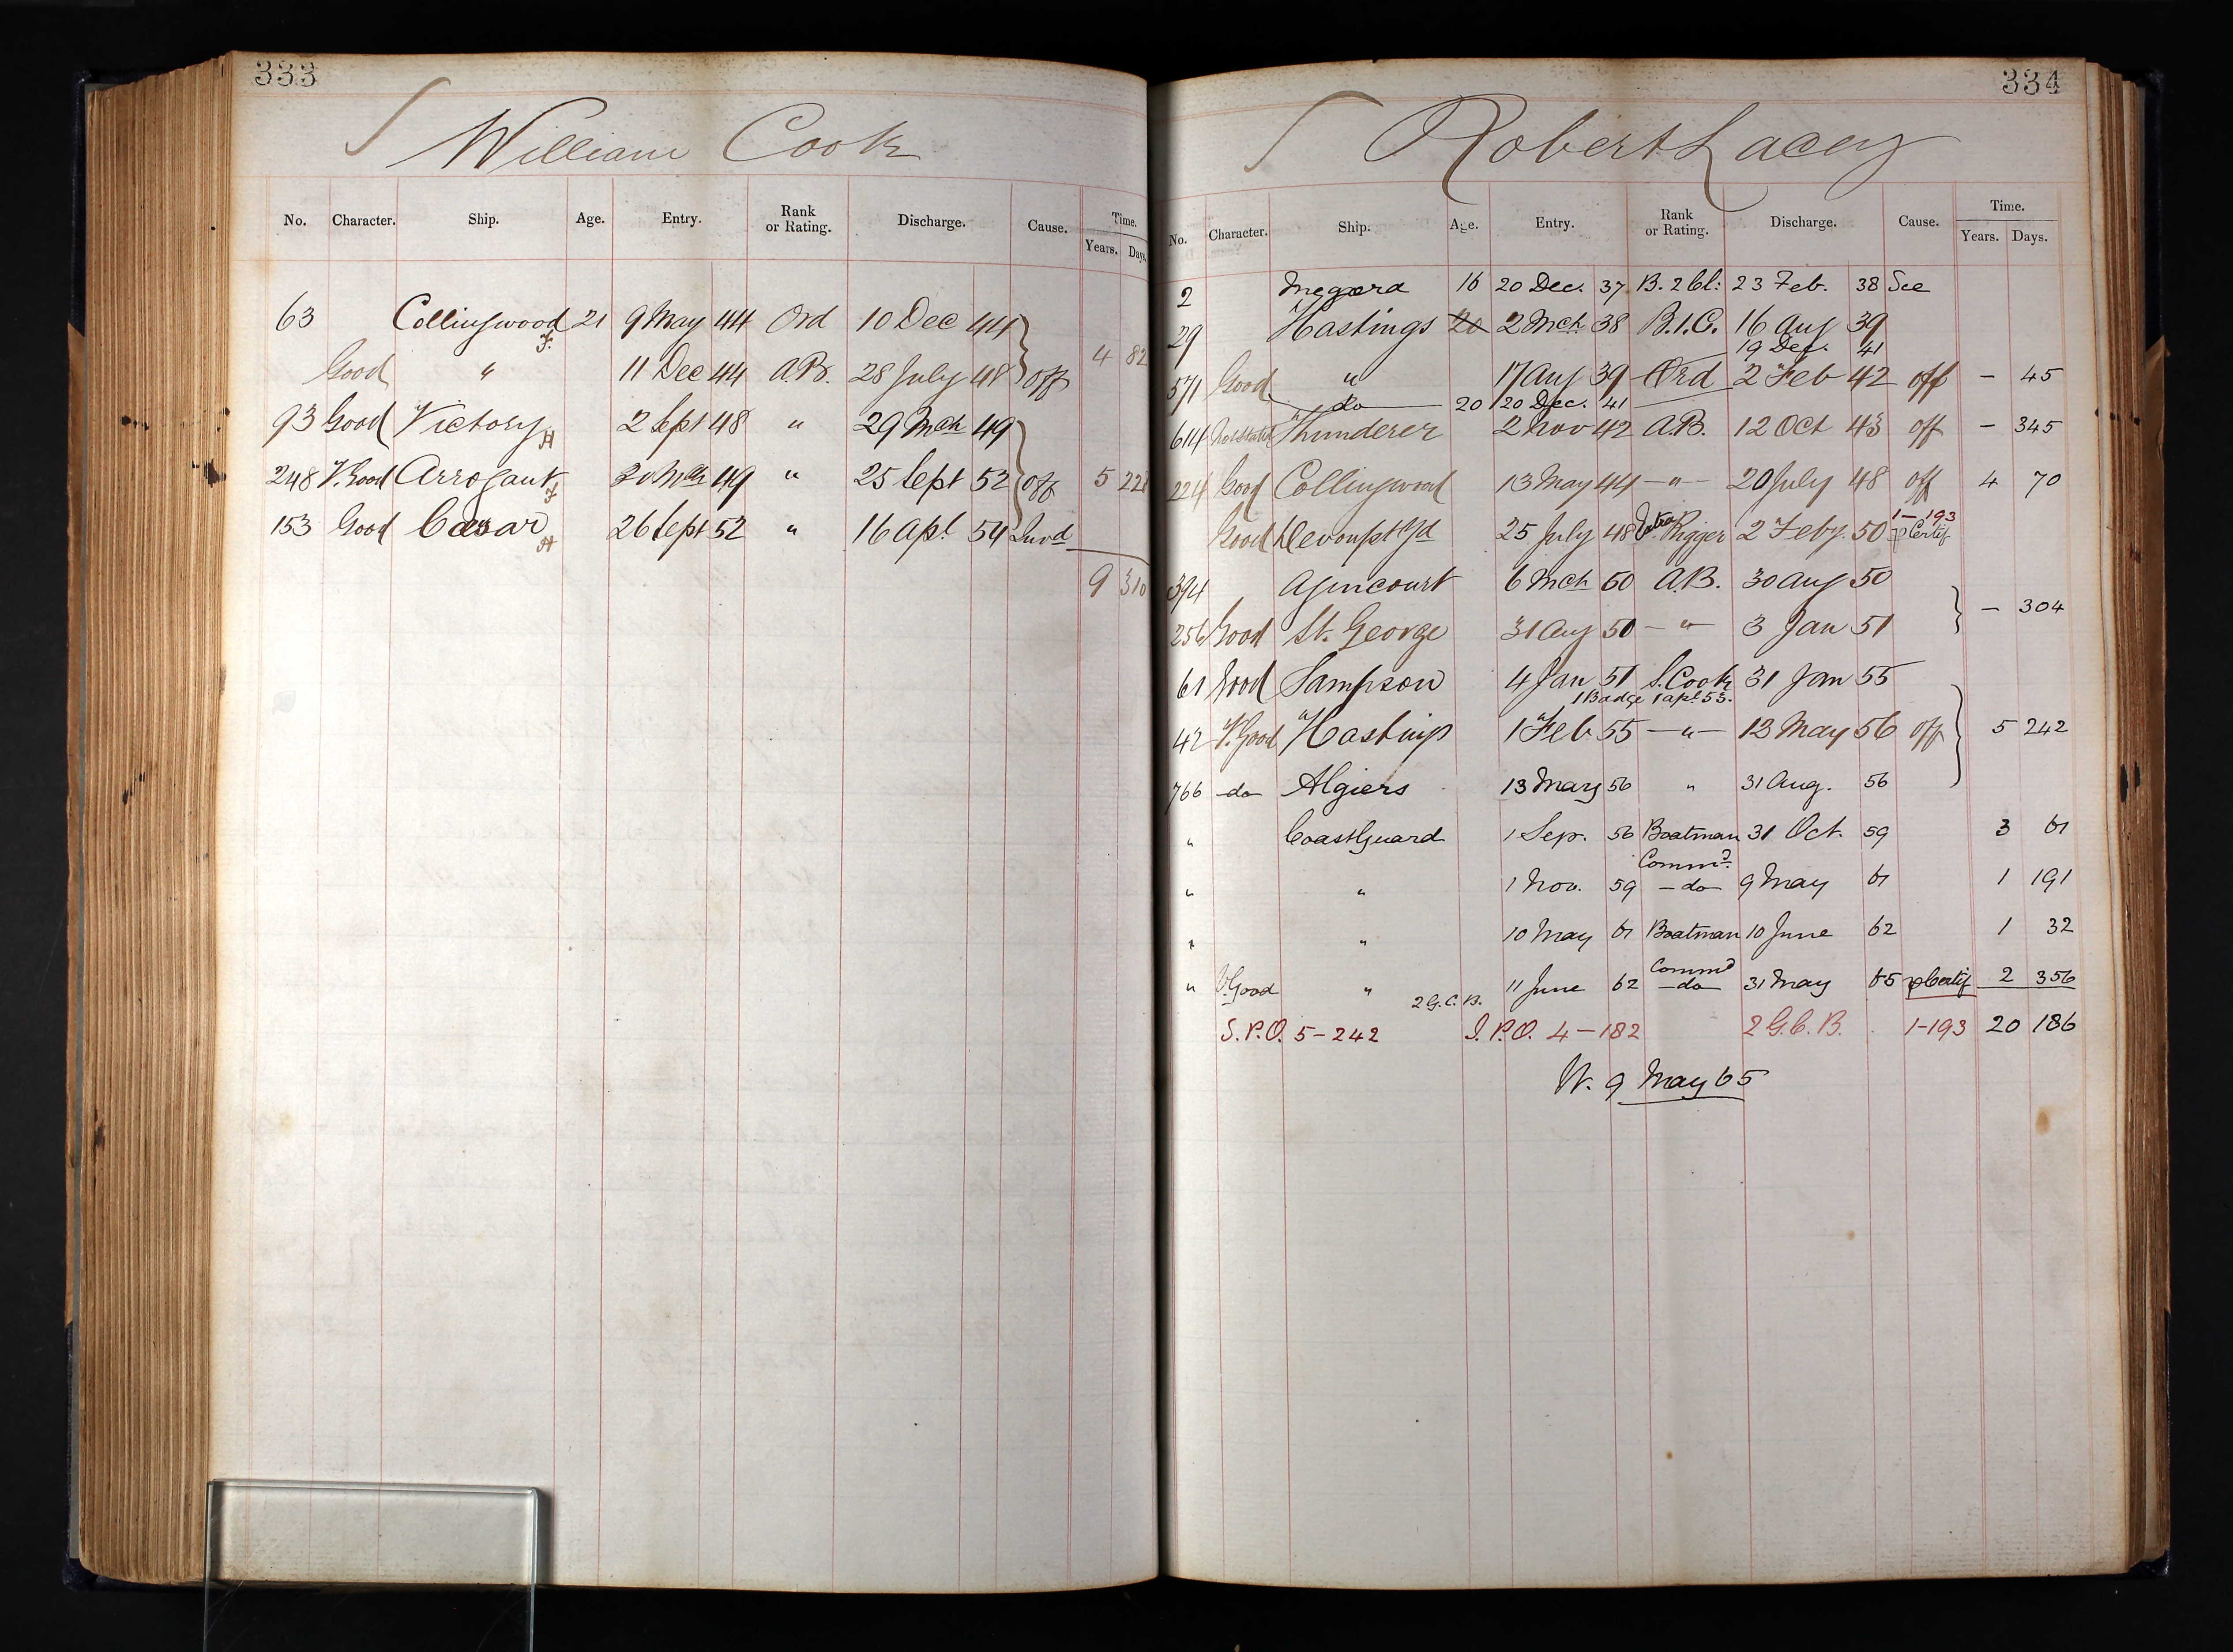 333
William Cook
No. Character. Ship. Age. Entry. Rank or Rating. Discharge. Cause. Time. Years. Days.
63 Collingwood F. 21 9 May 44 Ord 10 Dec 44
Good " 11 Dec 44 A.B. 28 July 48 off 4 82
93 Good Victory H 2 Sept 48 " 29 Mch 49
248 V. Good Arrogant F 30 Mch 49 " 25 Sept 52 off 5 228
153 Good Cæsar H 26 Sept 52 " 16 Apl. 54 Invd
9 310
334
Robert Lacey
No. Character. Ship. Age. Entry. Rank or Rating. Discharge. Cause. Time. Years. Days.
2 Megæra 16 20 Dec. 37 B. 2 Cl: 23 Feb. 38 See
29 Hastings 20 2 Mch 38 B.1.C. 16 Aug 39
19 Dec. 41
571 Good " 17 Aug 39 Ord 2 Feb 42 off - 45
do 20 20 Dec. 41
614 Not stated Thunderer 2 Nov 42 A.B. 12 Oct 43 off - 345
224 Good Collingwood 13 May 44 - " - 20 July 48 off 4 70
Good Devonpt Yd 25 July 48 Extra Rigger 2 Feby. 50 1-193 p Certif
394 Agincourt 6 Mch 50 A.B. 30 Aug 50
- 304
256 Good St. George 31 Aug 50 - " - 3 Jan 51
61 Good Sampson 4 Jan 51 S. Cook 31 Jan 55
1 Badge 1 Apl. 53.
42 V. Good Hastings 1 Feb. 55 - " - 12 May 56 off 5 242
766 - do - Algiers 13 May 56 " 31 Aug. 56
" CoastGuard 1 Sep. 56 Boatman 31 Oct. 59 3 61
" " 1 Nov. 59 Commd. - do - 9 May 61 1 191
" " 10 May 61 Boatman 10 June 62 1 32
" V. Good " 2 G.C.B. 11 June 62 Commd - do - 31 May 65 p Certif 2 356
S.P.O. 5-242 I.P.O. 4-182 2 G.C.B. 1-193 20 186
W. 9 May 65